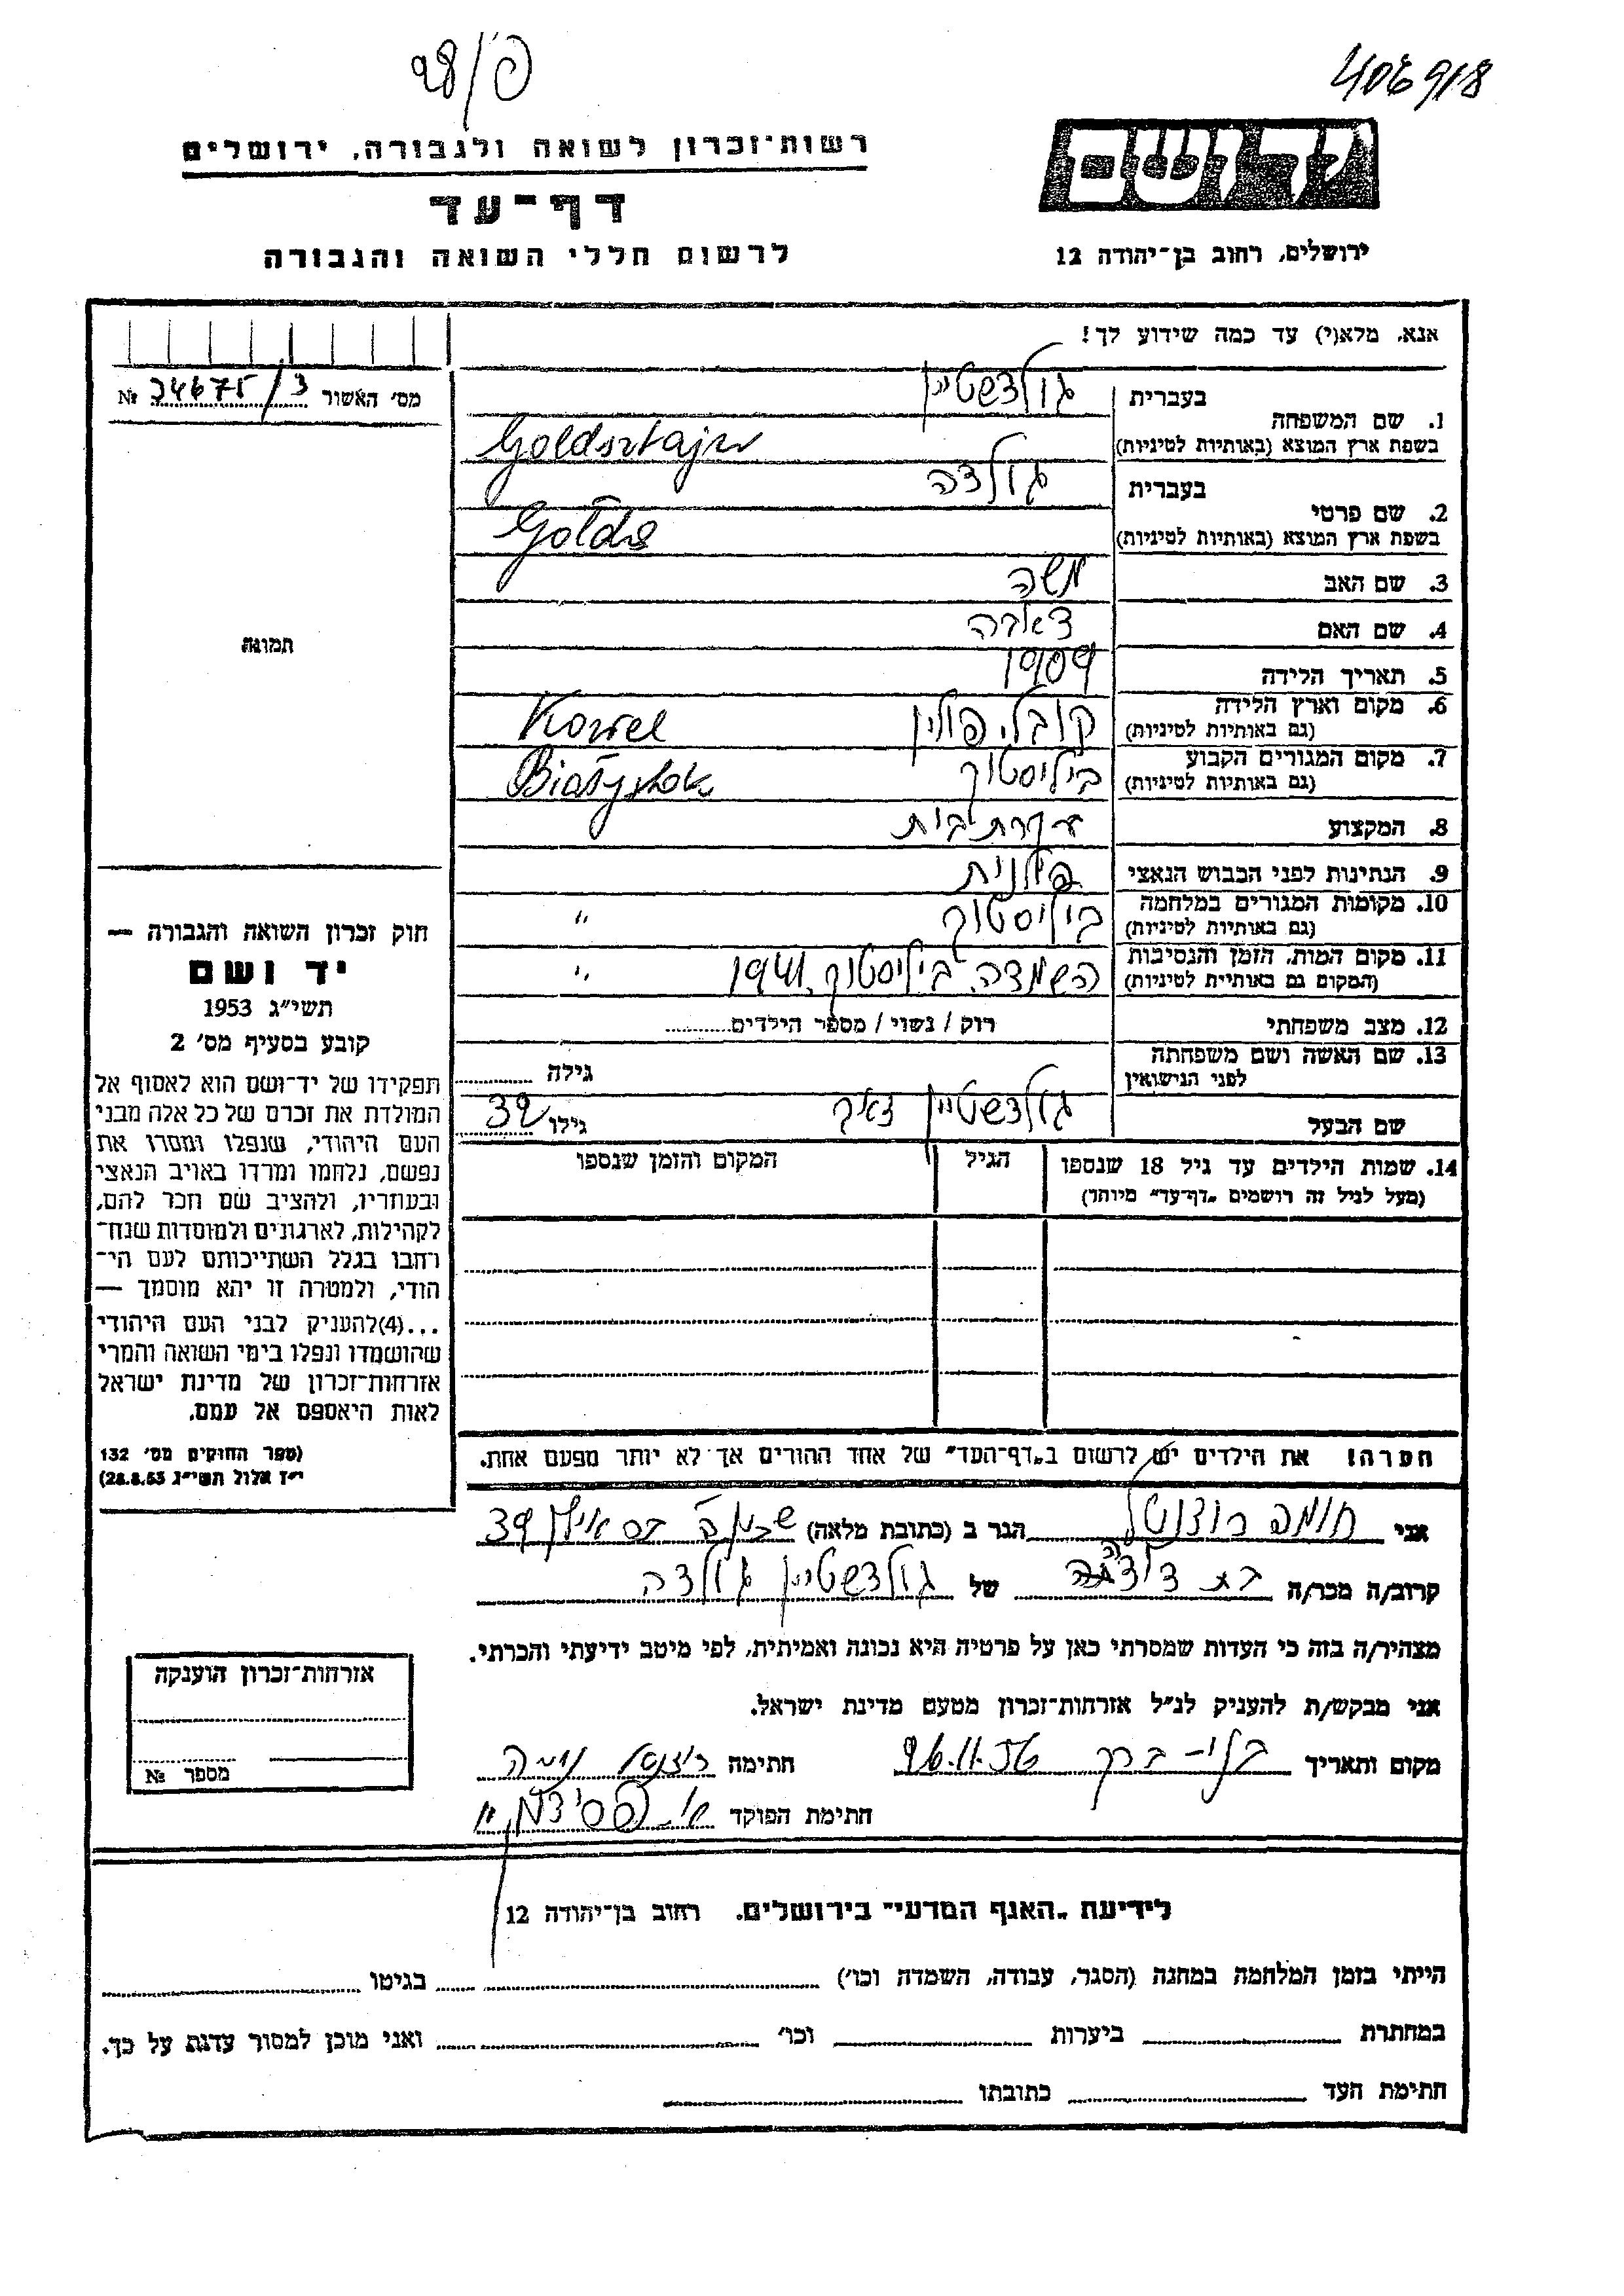 406918
98/פ
ידושם
רשות־זכרון לשואה ולגבורה, ירושלים
דף־עד
לרשום חללי השואה והגבורה
ירושלים, רחוב בן־יהודה 12
אנא, מלא(י) עד כמה שידוע לך!
מס׳ האשור 34675/3 №
תמונה
1. שם המשפחה בעברית גולדשטיין
בשפת ארץ המוצא (באותיות לטיניות) Goldsztajn
2. שם פרטי בעברית גולדה
בשפת ארץ המוצא (באותיות לטיניות) Golda
3. שם האב משה
4. שם האם
5. תאריך הלידה 1909
6. מקום וארץ הלידה (גם באותיות לטיניות) קובל, פולין Kowel
7. מקום המגורים הקבוע (גם באותיות לטיניות) ביליסטוק Białystok
8. המקצוע עקרת בית
9. הנתינות לפני הכבוש הנאצי פולנית
10. מקומות המגורים במלחמה (גם באותיות לטיניות) ביליסטוק "
11. מקום המות, הזמן והנסיבות (המקום גם באותיית לטיניות) השמדה, ביליסטוק, 1941 "
12. מצב משפחתי רוק / נשוי / מספר הילדים
13. שם האשה ושם משפחתה לפני הנישואין גילה
שם הבעל גולדשטיין גילו 39
14. שמות הילדים עד גיל 18 שנספו הגיל המקום והזמן שנספו
(מעל לגיל זה רושמים „דף־עד” מיוחד)
חוק זכרון השואה והגבורה —
יד ושם
תשי״ג 1953
קובע בסעיף מס׳ 2
תפקידו של יד־ושם הוא לאסוף אל
המולדת את זכרם של כל אלה מבני
העם היהודי, שנפלו ומסרו את
נפשם, נלחמו ומרדו באויב הנאצי
ובעוזריו, ולהציב שם וזכר להם,
לקהילות, לארגונים ולמוסדות שנח־
רבו בגלל השתייכותם לעם הי־
הודי, ולמטרה זו יהא מוסמך —
...(4)להעניק לבני העם היהודי
שהושמדו ונפלו בימי השואה והמרי
אזרחות־זכרון של מדינת ישראל
לאות היאספם אל עמם.
(ספר החוקים מס׳ 132
י״ז אלול תשי״ג 28.8.53)
הערה! את הילדים יש לרשום ב„דף־העד” של אחד ההורים אך לא יותר מפעם אחת.
אני נחמה רוזנטל הגר ב (כתובת מלאה) 39
קרוב/ה מכר/ה בת דודה של גולדשטיין גולדה
מצהיר/ה בזה כי העדות שמסרתי כאן על פרטיה היא נכונה ואמיתית, לפי מיטב ידיעתי והכרתי.
אני מבקש/ת להעניק לנ״ל אזרחות־זכרון מטעם מדינת ישראל.
מקום ותאריך בני-ברק חתימה רוזנטל נחמה
חתימת הפוקד
אזרחות־זכרון הוענקה
מספר №
לידיעת „האגף המדעי” בירושלים, רחוב בן־יהודה 12
הייתי בזמן המלחמה במחנה (הסגר, עבודה, השמדה וכו׳) בגיטו
במחתרת ביערות וכו׳ ואני מוכן למסור עדות על כך.
חתימת העד כתובתו